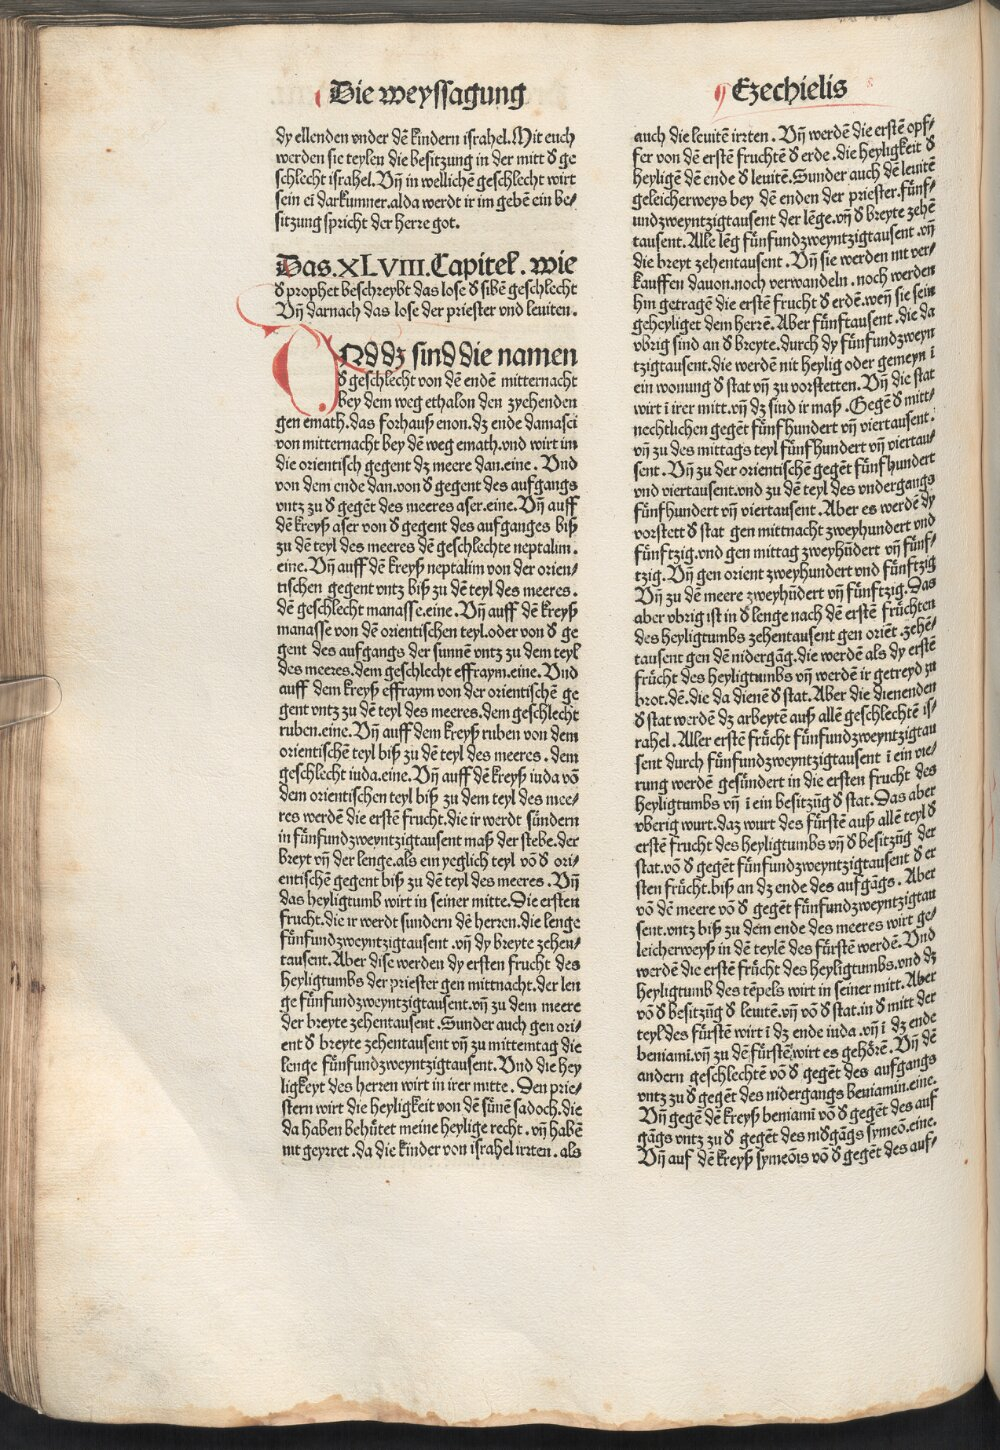 Die weyssagung
Ezechielis
dy ellenden vnder dē kindern israhel. Mit euch
werden sie teylen die besitzung in der mitt d̕ ge
schlecht israhel. Vn̄ in wellichē geschlecht wirt
sein ei darkummer. alda werdt ir im gebē ein be⸗
sitzung spricht der herre got.
Das. XLVIII. Capitel. wie
d̕ prophet beschreybt das lose d̕ sibē geschlecht
Vn̄ darnach das lose der priester vnd leuiten.
VNd dz sind die namen
d̕ geschlecht von dē endē mitternacht
bey dem weg ethalon den zyehenden
gen emath. das forhauß enon. dz ende damasci
von mitternacht bey dē weg emath. vnd wirt im
die orientisch gegent dz meere dan. eine. Vnd
von dem ende dan. von d̕ gegent des aufgangs
vntz zu d̕ gegēt des meeres aser. eine. Vn̄ auff
dē kreyß aser von d̕ gegent des aufganges biß
zu dē teyl des meeres dē geschlechte neptalim.
eine. Vn̄ auff dē kreyß neptalim von der orien⸗
tischen gegent vntz biß zu dē teyl des meeres.
dē geschlecht manasse. eine. Vn̄ auff dē kreyß
manasse von dē orientischen teyl. oder von d̕ ge
gent des aufgangs der sunnē vntz zu dem teyl
des meeres. dem geschlecht effraym. eine. Vnd
auff dem kreyß effraym von der orientischē ge
gent vntz zu dē teyl des meeres. dem geschlecht
ruben. eine. Vn̄ auff dem kreyß ruben von dem
orientischē teyl biß zu dē teyl des meeres. dem
geschlecht iuda. eine. Vn̄ auff dē kreyß iuda vō
dem orientischen teyl biß zu dem teyl des mee⸗
res werdē die erstē frucht. die ir werdt sündern
in fünfundzweyntzigtausent maß der stebe. der
breyt vn̄ der lenge. als ein yeglich teyl vō d̕ ori⸗
entischē gegent biß zu dē teyl des meeres. Vn̄
das heyligtumb wirt in seiner mitte. Die ersten
frucht. die ir werdt sundern dē herren. die lenge
fünfundzweyntzigtausent. vn̄ dy breyte zehen⸗
tausent. Aber dise werden dy ersten frucht des
heyligtumbs der priester gen mittnacht. der len
ge fünfundzweyntzigtausent. vn̄ zu dem meere
der breyte zehentausent. Sunder auch gen ori⸗
ent d̕ breyte zehentausent vn̄ zu mittemtag die
lenge fünfundzweyntzigtausent. Vnd die hey
ligkeyt des herren wirt in irer mitte. Den prie⸗
stern wirt die heyligkeit von dē sünē sadoch. die
da haben behütet meine heylige recht. vn̄ habē
nit geyrret. da die kinder von israhel irrten. als
auch die leuitē irrten. Vn̄ werdē die erstē opf⸗
fer von dē erstē fruchtē d̕ erde. die heyligkeit d̕
heyligē dē ende d̕ leuitē. Sunder auch dē leuitē
geleicherweys bey dē enden der priester. fünf⸗
undzweyntzigtausent der lēge. vn̄ d̕ breyte zehē
tausent. Alle lēg fünfundzweyntzigtausent. vn̄
die breyt zehentausent. Vn̄ sie werden nit ver⸗
kauffen dauon. noch verwandeln. noch werden
hin getragē die erstē frucht d̕ erdē. wen̄ sie sein
geheyliget dem herrē. Aber fünftausent. die da
vbrig sind an d̕ breyte. durch dy fünfundzweyn
tzigtausent. die werdē nit heylig oder gemeyn ī
ein wonung d̕ stat vn̄ zu vorstetten. Vn̄ die stat
wirt ī irer mitt. vn̄ dz sind ir maß. Gegē d̕ mitt⸗
nechtlichen gegēt fünfhundert vn̄ viertausent.
vn̄ zu des mittags teyl fünfhundert vn̄ viertau⸗
sent. Vn̄ zu der orientischē gegēt fünfhundert
vnd viertausent. vnd zu dē teyl des vndergangs
fünfhundert vn̄ viertausent. Aber es werdē dy
vorstett d̕ stat gen mittnacht zweyhundert vnd
fünftzig. vnd gen mittag zweyhūdert vn̄ fünf⸗
tzig. Vn̄ gen orient zweyhundert vnd fünftzig
Vn̄ zu dē meere zweyhūdert vn̄ fünftzig. Das
aber vbrig ist in d̕ lenge nach dē erstē früchten
des heyligtumbs zehentausent gen oriēt. zehē⸗
tausent gen dē nidergāg. die werdē als dy erstē
frücht des heyligtumbs vn̄ werdē ir getreyd zu
brot. dē. die da dienē d̕ stat. Aber die dienenden
d̕ stat werdē dz arbeytē auß allē geschlechtē is⸗
rahel. Aller erstē frücht fünfundzweyntzigtau
sent durch fünfundzweyntzigtausent ī ein vie⸗
rung werdē gesündert in die ersten frucht des
heyligtumbs vn̄ ī ein besitzūg d̕ stat. Das aber
vberig wurt. daz wurt des fürstē auß allē teyl d̕
erstē frucht des heyligtumbs vn̄ d̕ besitzūg der
stat. vō d̕ gegēt fünfundzweyntzigtausent d̕ er
sten frücht. biß an dz ende des aufgāgs. Aber
vō dē meere vō d̕ gegēt fünfundzweyntzigtau
sent. vntz biß zu dem ende des meeres wirt ge⸗
leicherweyß in dē teylē des fürstē werdē. Vnd
werdē die erstē frücht des heyligtumbs. vnd dz
heyligtumb des tēpels wirt in seiner mitt. Aber
vō d̕ besitzūg d̕ leuitē. vn̄ vō d̕ stat. in d̕ mitt der
teyl des fürstē wirt ī dz ende iuda. vn̄ ī dz ende
beniamī. vn̄ zu dē fürstē. wirt es gehörē. Vn̄ dē
andern geschlechtē vō d̕ gegēt des aufgangs
vntz zu d̕ gegēt des nidergangs beniamin. eine.
Vn̄ gegē dē kreyß beniamī vō d̕ gegēt des auf
gāgs vntz zu d̕ gegēt des nid̕gāgs symeō. eine.
Vn̄ auf dē kreyß symeōis vō d̕ gegēt des auf⸗